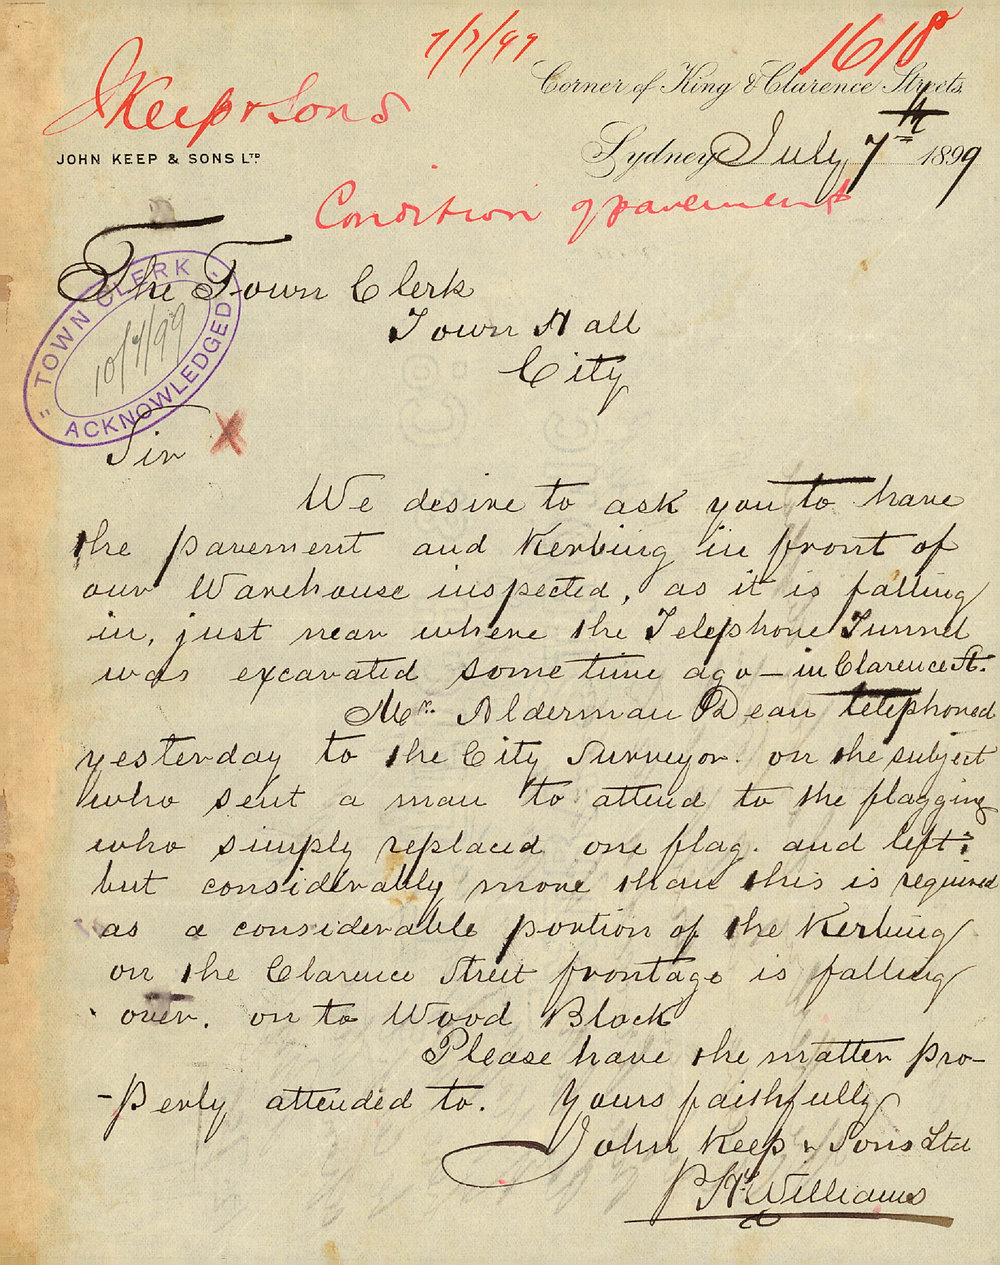 7/7/99
1618
J Keep & Sons
Corner of King & Clarence Streets.
JOHN KEEP & SONS LTD
Sydney July 7th 1899
Condition of pavement
To
The Town Clerk
Town Hall
City
TOWN CLERK
10/7/99
ACKNOWLEDGED
Sir X
We desire to ask you to have
the pavement and Kerbing in front of
our Warehouse inspected, as it is falling
in, just near where the Telephone Tunnel
was excavated some time ago – in Clarence St.
Mr. Alderman Dean telephoned
yesterday to the City Surveyor. on the subject
who sent a man to attend to the flagging
who simply replaced one flag. and left;
but considerably more than this is required
as a considerable portion of the Kerbing
on the Clarence Street frontage is falling
over. on to Wood Block
Please have the matter pro-
-perly attended to. Yours faithfully
John Keep & Sons Ltd
P H Williams